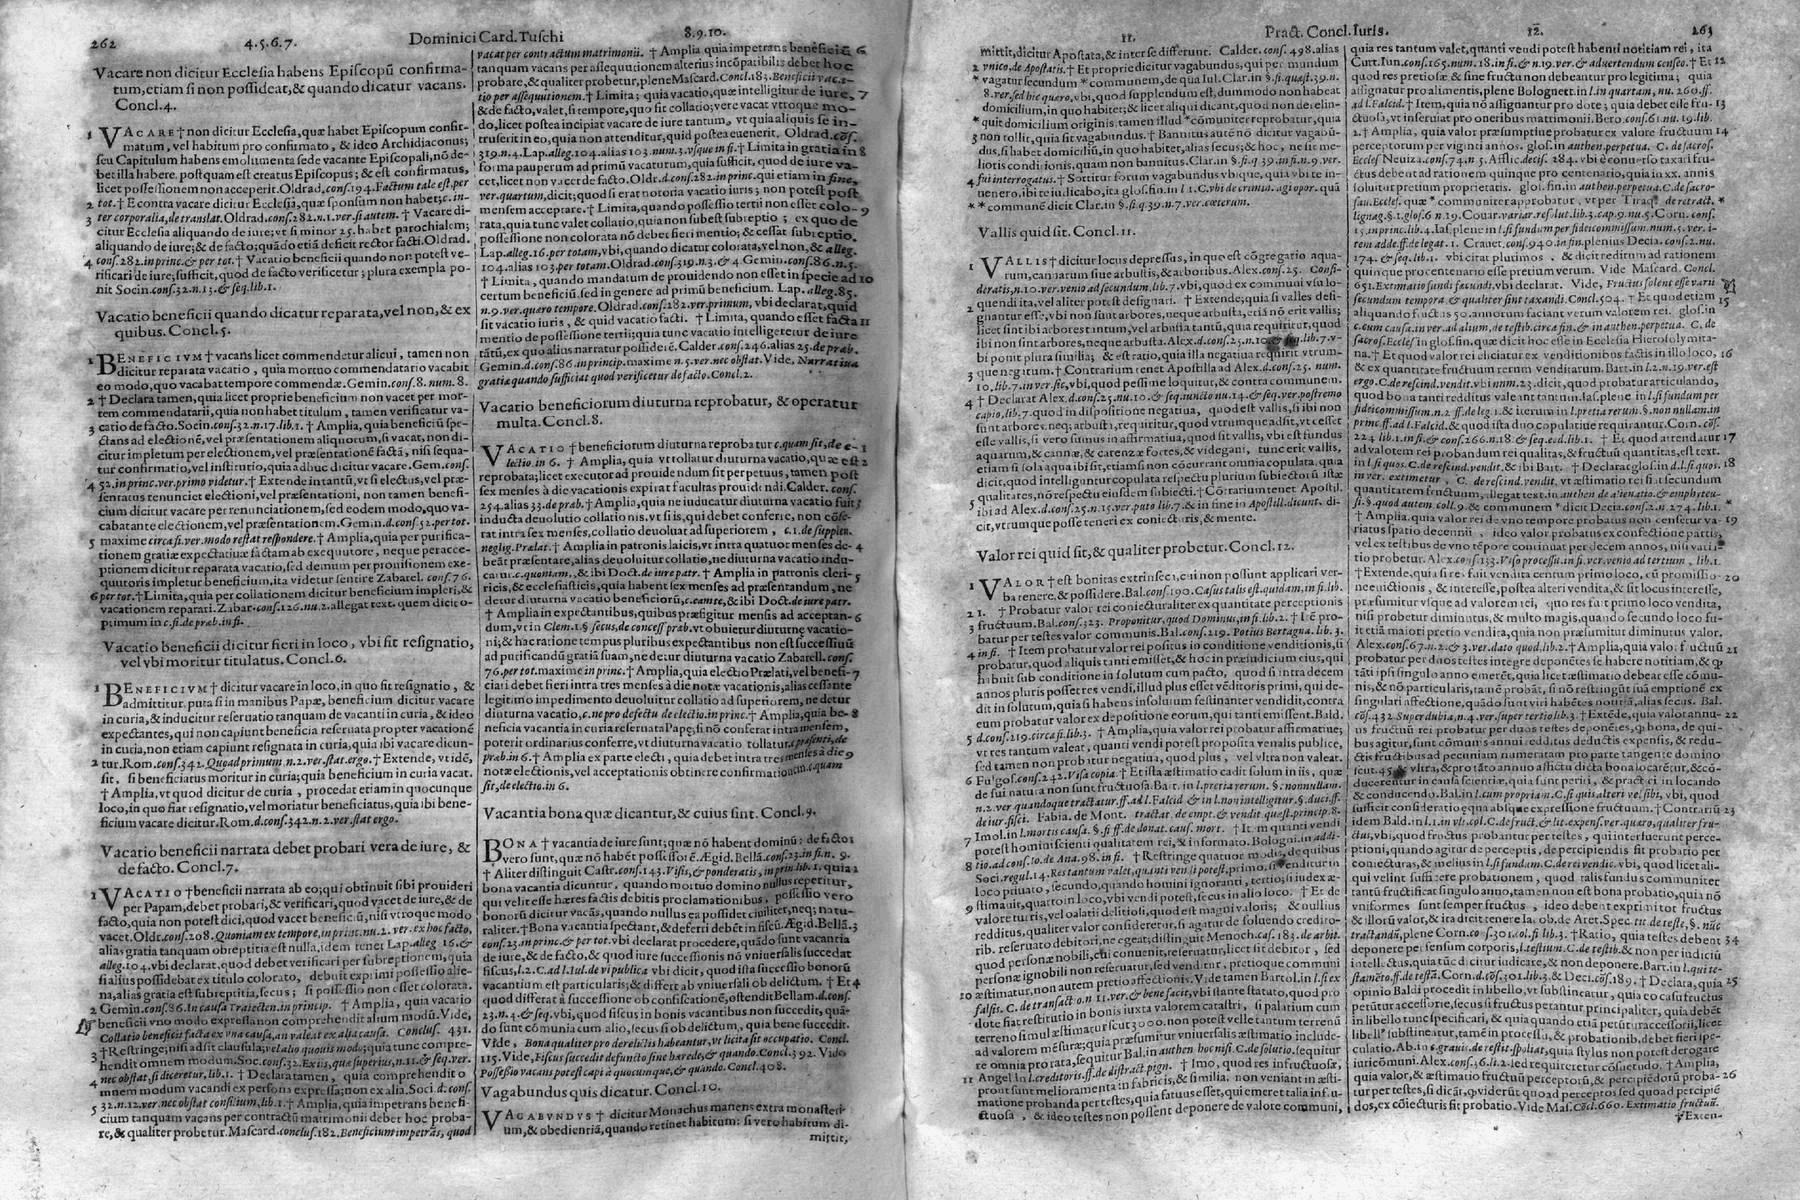 262 4.5.6.7. Dominici Card. Tuschi 8.9.10.
Vacare non dicitur Ecclesia habens Episcopũ confirma-
tum, etiam si non possideat, & quando dicatur vacans.
Concl. 4.
1 VACARE † non dicitur Ecclesia, quæ habet Episcopum confir-
matum, vel habitum pro confirmato, & ideo Archidiaconus;
seu Capitulum habens emolumenta sede vacante Episcopali, nõ de-
bet illa habere, postquam est creatus Episcopus; & est confirmatus,
licet possessionem non acceperit. Oldrad. cons. 194. Factum tale est, per
2 tot. † E contra vacare dicitur Ecclesia, quæ sponsum non habet; c. in-
3 ter corporalia, de translat. Oldrad. cons. 282. n. 1. ver. si autem. † Vacare di-
citur Ecclesia aliquando de iure; vt si minor 25. habet parochialem;
aliquando de iure; & de facto; quãdo etiã deficit rector facti. Oldrad.
4 cons. 282. in princ. & per tot. † Vacatio beneficii quando non potest ve-
rificari de iure, sufficit, quod de facto verificetur; plura exempla po-
nit Socin. cons. 32. n. 13. & seq. lib. 1.
Vacatio beneficii quando dicatur reparata, vel non, & ex
quibus. Concl. 5.
1 BENEFICIVM † vacans licet commendetur alicui, tamen non
dicitur reparata vacatio, quia mortuo commendatario vacabit
eo modo, quo vacabat tempore commendæ. Gemin. cons. 8. num. 8.
2 † Declara tamen, quia licet proprie beneficium non vacet per mor-
tem commendatarii, quia non habet titulum, tamen verificatur va-
3 catio de facto. Socin. cons. 32. n. 17. lib. 1. † Amplia, quia beneficiũ spe-
ctans ad electionẽ, vel præsentationem aliquorum, si vacat, non di-
citur impletum per electionem, vel præsentationẽ factã, nisi sequa-
tur confirmatio, vel institutio, quia adhuc dicitur vacare. Gem. cons.
4 52. in princ. ver. primo videtur. † Extende in tantũ, vt si electus, vel præ-
sentatus renunciet electioni, vel præsentationi, non tamen benefi-
cium dicitur vacare per renunciationem, sed eodem modo, quo va-
cabat ante electionem, vel præsentationem. Gemin. d. cons. 52. per tot.
5 maxime circa fi. ver. modo restat respondere. † Amplia, quia per purifica-
tionem gratiæ expectatiuæ factam ab exequutore, neque per acce-
ptionem dicitur reparata vacatio, sed demum per prouisionem exe-
quutoris impletur beneficium, ita videtur sentire Zabarel. cons. 76.
6 per tot. † Limita, quia per collationem dicitur beneficium impleri, &
vacationem reparati. Zabar. cons. 126. nu. 2. allegat text. quem dicit o-
ptimum in c. si. de præb. in fi.
Vacatio beneficii dicitur fieri in loco, vbi fit resignatio,
vel vbi moritur titulatus. Concl. 6.
1 BENEFICIVM † dicitur vacare in loco, in quo fit resignatio, &
admittitur. puta si in manibus Papæ, beneficium dicitur vacare
in curia, & inducitur reseruatio tanquam de vacanti in curia, & ideo
expectantes, qui non capiunt beneficia reseruata propter vacationẽ
in curia, non etiam capiunt resignata in curia, quia ibi vacare dicun-
2 tur. Rom. cons. 342. Quoad primum n. 2. ver. stat ergo. † Extende, vt idẽ,
sit, si beneficiatus moritur in curia; quia beneficium in curia vacat.
† Amplia, vt quod dicitur de curia, procedat etiam in quocunque
loco, in quo fiat resignatio, vel moriatur beneficiatus, quia ibi bene-
ficium vacare dicitur. Rom. d. cons. 342. n. 2. ver. stat ergo.
Vacatio beneficii narrata debet probari vera de iure, &
de facto. Concl. 7.
1 VACATIO † beneficii narrata ab eo; qui obtinuit sibi prouideri
per Papam, debet probari, & verificari, quod vacet de iure, & de
facto, quia non potest dici, quod vacet beneficiũ, nisi vtroque modo
vacet. Oldr. cons. 208. Quoniam ex tempore, in princ. nu. 2. ver. ex hoc facto,
alias gratia tanquam obreptitia est nulla, idem tenet Lap. alleg. 16. &
alleg. 104. vbi declarat, quod debet verificari per subreptionem, quia
si alius possidebat ex titulo colorato, debuit exprimi possessio alie-
na, alias gratia est subreptitia, secus; si possessio non esset colorata.
2 Gemin. cons. 86. In causa Traiecten. in princip. † Amplia, quia vacatio
beneficii vno modo expressa non comprehendit alium modũ. Vide,
Collatio beneficii facta ex vna causa, an valeat ex alia causa. Conclus. 431.
3 † Restringe; nisi adsit clausula; vel alio quouis modo; quia tunc compre-
hendit omnem modum. Soc. cons. 32. Ex iis, quæ superius, n. 11. & seq. ver.
4 nec obstat, si diceretur, lib. 1. † Declara tamen, quia comprehendit o-
mnem modum vacandi ex persona expressa; non ex alia. Soci. d. cons.
5 32. n. 12. ver. nec obstat consilium, lib. 1. † Amplia, quia impetrans benefi-
cium tanquam vacans per contractũ matrimonii debet hoc proba-
re, & qualiter probetur. Mascard. conclus. 182. Beneficium impetrãs, quod
vacat per contractum matrimonii. † Amplia quia impetrans beneficiũ 6
tanquam vacans per assequutionem alterius incõpatibilis debet hoc
probare, & qualiter probetur, plene Mascard. Concl. 183. Beneficii vaca-
tio per assequutionem. † Limita; quia vacatio, quæ intelligitur de iure, 7
& de facto, valet, si tempore, quo fit collatio; vere vacat vtroque mo-
do, licet postea incipiat vacare de iure tantum, vt quia aliquis se in-
truserit in eo, quia non attenditur, quid postea euenerit. Oldrad. cõs.
319. n. 4. Lap. alleg. 104. alias 103. num. 3. vsque in fi. † Limita in gratia in 8
forma pauperum ad primũ vacaturum, quia sufficit, quod de iure va-
cet, licet non vacet de facto. Oldr. d. cons. 282. in princ. qui etiam in fine,
ver. quartum, dicit; quod si erat notoria vacatio iuris; non potest post
mensem acceptare. † Limita, quando possessio tertii non esset colo- 9
rata, quia tunc valet collatio, quia non subest subreptio; ex quo de
possessione non colorata nõ debet fieri mentio; & cessat subreptio.
Lap. alleg. 16. per totam, vbi, quando dicatur colorata, vel non, & alleg.
104. alias 103. per totam. Oldrad. cons. 319. n. 3. & 4. Gemin. cons. 86. n. 5.
† Limita, quando mandatum de prouidendo non esset in specie ad 10
certum beneficiũ. sed in genere ad primũ beneficium. Lap. alleg. 85.
n. 9. ver. quero tempore. Oldrad. cons. 282. ver. primum, vbi declarat, quid
sit vacatio iuris, & quid vacatio facti. † Limita, quando esset facta 11
mentio de possessione tertii; quia tunc vacatio intelligeretur de iure
tãtũ, ex quo alias narratur possideri. Calder. cons. 246. alias 25. de præb.
Gemin. d. cons. 86. in princip. maxime n. 5. ver. nec obstat. Vide, Narratiua
gratiæ quando sufficiat quod verificetur de facto. Concl. 2.
Vacatio beneficiorum diuturna reprobatur, & operatur
multa. Concl. 8.
VACATIO † beneficiorum diuturna reprobatur c. quam sit, de e- 1
lectio. in 6. † Amplia, quia vt tollatur diuturna vacatio, quæ est 2
reprobata; licet executor ad prouidendum sit perpetuus, tamen post
sex menses à die vacationis expirat facultas prouidendi. Calder. cons.
254. alias 33. de præb. † Amplia, quia ne inducatur diuturna vacatio fuit 3
inducta deuolutio collationis, vt si is, qui debet conferre, non cõfe-
rat intra sex menses, collatio deuoluat ad superiorem, c. 1. de supplen.
neglig. Prælat. † Amplia in patronis laicis, vt intra quatuor menses de- 4
beãt præsentare, alias deuoluitur collatio, ne diuturna vacatio indu-
catur. c. quoniam, & ibi Doct. de iure patr. † Amplia in patronis cleri- 5
ricis, & ecclesiasticis, quia habent sex menses ad præsentandum, ne
detur diuturna vacatio beneficiorũ, c. eam te, & ibi Doct. de iure patr.
† Amplia in expectantibus, quibus præfigitur mensis ad acceptan- 6
dum, vt in Clem. 1. § secus, de concess. præb. vt obuietur diuturnæ vacatio-
ni; & hac ratione tempus pluribus expectantibus non est successiuũ
ad purificandũ gratiã suam, ne detur diuturna vacatio Zabarell. cons.
76. per tot. maxime in princ. † Amplia, quia electio Prælati, vel benefi- 7
ciati debet fieri intra tres menses à die notæ vacationis, alias cessante
legitimo impedimento deuoluitur collatio ad superiorem, ne detur
diuturna vacatio, c. ne pro defectu de electio. in princ. † Amplia, quia be- 8
neficia vacantia in curia reseruata Papę; si nõ conferat intra mensem,
poterit ordinarius conferre, vt diuturna vacatio tollatur. c. præsenti, de
præb. in 6. † Amplia ex parte electi, quia debet intra tres menses à die 9
notæ electionis, vel acceptationis obtinere confirmationem. c. quam
sit, de electio. in 6.
Vacantia bona quæ dicantur, & cuius sint. Concl. 9.
BONA † vacantia de iure sunt; quæ nõ habent dominũ: de facto 1
vero sunt, quæ nõ habẽt possessorẽ. Ægid. Bellã. cons. 23. in fi. n. 9.
† Aliter distinguit Castr. cons. 143. Visis, & ponderatis, in prin. lib. 1. quia 2
bona vacantia dicuntur, quando mortuo domino nullus reperitur,
qui velit esse hæres factis debitis proclamationibus, possessio vero
bonorũ dicitur vacãs, quando nullus ea possidet ciuiliter, neq; natu-
raliter. † Bona vacantia spectant, & deferri debẽt in fiscũ. Ægid. Bellã. 3
cons. 23. in princ. & per tot. vbi declarat procedere, quãdo sunt vacantia
de iure, & de facto, & quod iure successionis nõ vniuersalis succedat
fiscus, l. 2. C. ad l. Iul. de vi publica vbi dicit, quod ista successio bonorũ
vacantium est particularis; & differt ab vniuersali ob delictum. † Et 4
quod differat à successione ob confiscationẽ, ostendit Bellam. d. cons.
23. n. 4. & seq. vbi, quod fiscus in bonis vacantibus non succedit, quã-
do sunt cõmunia cum alio, secus si ob delictum, quia bene succedit.
Vide, Bona qualiter pro derelictis habeantur, vt licita sit occupatio. Concl.
115. Vide, Fiscus succedit defuncto sine hærede, & quando. Concl. 392. Vide
Possessio vacans potest capi à quocunque, & quando. Concl. 408.
Vagabundus quis dicatur. Concl. 10.
VAGABVNDVS † dicitur Monachus manens extra monasteri-
um, & obedientiã, quando retinet habitum: si vero habitum di-
mittit,
11. Pract. Concl. Iuris. 12. 263
mittit, dicitur Apostata, & inter se differunt. Calder. cons. 498. alias
2 vnico. de Apostatis. † Et propriè dicitur vagabundus, qui per mundum
* vagatur secundum * communem, de qua Iul. Clar. in §. fi. quæst. 39. n.
8. ver. sed hic quero, vbi, quod supplendum est, dummodo non habeat
domicilium, in quo habitet; & licet aliqui dicant, quod non derelin-
* quit domicilium originis. tamen illud * cõmuniter reprobatur, quia
3 non tollit, quin sit vagabundus. † Bannitus autẽ nõ dicitur vagabũ-
dus, si habet domiciliũ, in quo habitet, alias secus; & hoc, ne sit me-
lioris conditionis. quam non bannitus. Clar. in §. fi. q. 39. in fi. n. 9. ver.
4 fui interrogatus. † Sortitur forum vagabundus vbique, quia vbi te in-
uenero, ibi te iudicabo, ita glos. fin. in l. 1. C. vbi de crimin. agi opor. quã
* * communẽ dicit Clar. in §. fi. q. 39. n. 7. ver. cæterum.
Vallis quid sit. Concl. 11.
1 VALLIS † dicitur locus depressus, in quo est cõgregatio aqua-
rum, cannarum siue arbustis, & arboribus. Alex. cons. 25. Consi-
deratis, n. 10. ver. venio ad secundum, lib. 7. vbi, quod ex communi vsu lo-
2 quendi ita, vel aliter potest designari. † Extende; quia si valles desi-
gnantur esse, vbi non sunt arbores, neque arbusta, etiã nõ erit vallis;
licet sint ibi arbores tantum, vel arbusta tantũ, quia requiritur, quod
ibi non sint arbores, neque arbusta. Alex. d. cons. 25. n. 10. & seq. lib. 7. v-
bi ponit plura similia; & est ratio, quia illa negatiua requirit vtrum-
3 que negitum. † Contrarium tenet Apostilla ad Alex. d. cons. 25. num.
10. lib. 7. in ver. sic, vbi, quod pessime loquitur, & contra communem.
4 † Declarat Alex. d. cons. 25. nu. 10. & seq. iuncto nu. 14. & seq. ver. postremo
capio, lib. 7. quod in dispositione negatiua, quod est vallis, si ibi non
sunt arbores, neq; arbusti, requiritur, quod vtrumque adsit, vt esset
esse vallis, si vero sumus in affirmatiua, quod sit vallis, vbi est fundus
aquarum, & cannæ, & catenzæ fortes, & videgani, tunc erit vallis,
etiam si sola aqua ibi sit, etiamsi non cõcurrant omnia copulata, quia
dicit, quod intelliguntur copulata respectu plurium subiectorũ istæ
5 qualitates, nõ respectu eiusdem subiecti. † Cõtrarium tenet Apostil.
ibi ad Alex. d. cons. 25. n. 15. ver. puto lib. 7. & in fine in Apostill. dicunt, di-
cit, vtrumque posse teneri ex coniecturis, & mente.
Valor rei quid sit, & qualiter probetur. Concl. 12.
1 VALOR † est bonitas extrinseca, cui non possunt applicari ver-
ba tenere, & possidere. Bal. cons. 190. Casus talis est. quidam, in fi. lib.
2 1. † Probatur valor rei coniecturaliter ex quantitate perceptionis
3 fructuum. Bal. cons. 323. Proponitur, quod Dominus, in fi. lib. 2. † Itẽ pro-
batur per testes valor communis. Bal. cons. 219. Potius Bertagna. lib. 3.
4 in fi. † Item probatur valor rei positus in conditione venditionis, si
probatur, quod aliquis tanti emisset, & hoc in præiudicium eius, qui
habuit sub conditione in solutum cum pacto, quod si intra decem
annos pluris posset res vendi, illud plus esset vẽditoris primi, qui de-
dit in solutum, quia si habens insolutum festinanter vendidit, contra
eum probatur valor ex depositione eorum, qui tanti emissent. Bald.
5 d. cons. 219. circa fi. lib. 3. † Amplia, quia valor rei probatur affirmatiue;
vt res tantum valeat, quanti vendi potest proposita venalis publice,
sed tamen non probatur negatiua, quod plus, vel vltra non valeat.
6 Fulgos. cons. 242. Visa copia. † Et ista æstimatio cadit solum in iis, quæ
de sui natura non sunt fructuosa. Bart. in l. pretia rerum. §. nonnullam.
n. 2. ver. quandoque tractatur. ff. ad l. Falcid. & in l. non intelligitur. §. duci. ff.
de iur. fisci. Fabia. de Mont. tractat. de empt. & vendit. quæst. princip. 8.
7 Imol. in l. mortis causa. §. si ff. de donat. caus. mort. † Itẽ quanti vendi
potest homini scienti qualitatem rei, & informato. Bologni. in addi-
8 tio. ad cons. 10. de Ana. 98. in fi. † Restringe quatuor modis, de quibus
Soci. regul. 14. Res tantum valet, quanti vendi potest, primo, si venditur in
loco priuato, secundo, quando homini ignoranti, tertio, si iudex æ-
stimauit, quarto in loco, vbi vendi potest, secus in alio loco. † Et de
9 valore turris, vel palatii delitiosi, quod est magni valoris; & nullius
redditus, qualiter valor consideretur, si agatur de soluendo credito-
rib. reseruato debitori, ne egeat; distinguit Menoch. cas. 183. de arbit.
quod personæ nobili, cui conuenit, reseruatur, licet sit debitor, sed
personæ ignobili non reseruatur, sed venditur, pretioque communi
10 æstimatur, non autem pretio affectionis. Vide tamen Bartol. in l. si ex
falsis. C. de transact. o. n. 11. ver. & bene facit, vbi stante statuto, quod pro
dote fiat restitutio in bonis iuxta valorem catastri, si palatium cum
terreno simul æstimatur scut. 3000. non potest velle tantum terrenũ
ad valorem mẽsuræ; quia præsumitur vniuersalis æstimatio include-
re omnia pro rata, sequitur Bal. in authen. hoc nisi. C. de solutio. sequitur
11 Angel. in l. creditoris. ff. de distract. pign. † Imo, quod res infructuosæ,
putantur melioramenta in fabricis, & similia. non veniant in æsti-
matione probanda per testes, quia fatuus esset, qui emeret talia infru-
ctuosa, & ideo testes non possent deponere de valore communi,
quia res tantum valet, quanti vendi potest habenti notitiam rei, ita
Curt. Iun. cons. 165. num. 18. in fi. & n. 19. ver. & aduertendum censeo. † Et 12
quod res pretiosæ & sine fructu non debeantur pro legitima; quia
assignatur pro alimentis, plene Bolognett. in l. in quartam, nu. 260. ff.
ad l. Falcid. † Item, quia nõ assignantur pro dote; quia debet esse fru- 13
ctuosa, vt inseruiat pro oneribus matrimonii. Bero. cons. 61. nu. 19. lib.
2. † Amplia, quia valor præsumptiue probatur ex valore fructuum 14
perceptorum per viginti annos. glos. in authen. perpetua. C. de sacros.
Eccles. Neuiza. cons. 74. n. 5. Afflic. decis. 284. vbi ẽ conuerso taxari fru-
ctus debent ad rationem quinque pro centenario, quia in xx. annis
soluitur pretium proprietatis. glos. fin. in authen. perpetua. C. de sacro-
san. Eccles. quæ * communiter approbatur, vt per Tiraq. de retract. *
lignag. §. 1. glos. 6. n. 19. Couar. variar. resolut. lib. 3. cap. 9. nu. 5. Corn. cons.
15. in princ. lib. 4. Ias. plene in l. si fundum per fideicommissum. num. 5. ver. i-
tem adde. ff. de legat. 1. Crauet. cons. 940. in fin. plenius Decia. cons. 2. nu.
174. & seq. lib. 1. vbi citat plurimos, & dicit reditum ad rationem
quinque pro centenario esse pretium verum. Vide Mascard. Concl.
651. Extimatio fundi secundi, vbi declarat. Vide, Fructus solent esse varii
secundum tempora, & qualiter sint taxandi. Concl. 504. † Et quod etiam 15
aliquando fructus 50. annorum faciant verum valorem rei. glos. in
c. cum causa. in ver. ad alium, de testib. circa fin. & in authen. perpetua. C. de
sacros. Eccles. in glos. fin. quæ dicit hoc esse in Ecclesia Hierosolymita-
na. † Et quod valor rei eliciatur ex venditionibus factis in illo loco, 16
& ex quantitate fructuum rerum venditarum. Bart. in l. 2. n. 19. ver. est
ergo. C. de rescind. vendit. vbi num. 23. dicit, quod probatur articulando,
quod bona tanti redditus valeant tantum. Ias. plene in l. si fundum per
fideicommissum. n. 2. ff. de leg. 1. & iterum in l. pretia rerum. §. non nullam. in
princ. ff. ad l. Falcid. & quod ista duo copulatiue requirantur. Corn. cõs.
224. lib. 1. in fi. & cons. 266. n. 18. & seq. eod. lib. 1. † Et quod attendatur 17
ad valorem rei probandum rei qualitas, & fructuũ quantitas, est text.
in l. si quos. C. de rescind. vendit. & ibi Bart. † Declarat glos. in d. l. si quos. 18
in ver. extimetur, C. de rescind. vendit. vt æstimatio rei fiat secundum
quantitatem fructuum, allegat text. in authen. de alienatio. & emphyteu-
si. §. quod autem. coll. 9. & communem * dicit Decia. cons. 2. n. 274. lib. 1. *
† Amplia. quia valor rei de vno tempore probatus non censetur va- 19
riatus spatio decennii, ideo valor probatus ex confectione partis,
vel ex testibus de vno tẽpore continuatur per decem annos, nisi varia-
tio probetur. Alex. cons. 133. Viso processu, in fi. ver. venio ad tertium, lib. 1.
† Extende, quia si res fuit vendita centum primo loco, cũ promissio- 20
ne euictionis, & interesse, postea alteri vendita, & sit locus interesse,
præsumitur vsque ad valorem rei, quo res fuit primo loco vendita,
nisi probetur diminutus, & multo magis, quando secundo loco fu-
it etiã maiori pretio vendita, quia non præsumitur diminutus valor.
Alex. cons. 67. n. 2. & 3. ver. dato quod. lib. 2. † Amplia, quia valor fructuũ 21
probatur per duos testes integre deponẽtes se habere notitiam, &
tãti ipsi singulo anno emerẽt, quia licet æstimatio debeat esse cõmu-
nis, & nõ particularis, tamẽ probãt, si nõ restringũt suã emptionẽ ex
singulari affectione, quãdo sunt viri habẽtes notitiã, alias secus. Bal.
cõs. 432. Super dubia, n. 4. ver. super tertio lib. 3. † Extẽde, quia valor annu- 22
us fructuũ rei probatur per duos testes deponẽtes, bona, de qui-
bus agitur, sunt cõmunis annui redditus deductis expensis, & redu-
ctis fructibus ad pecuniam numeratam pro parte tangente domino
scut. 45. & vltra, & pro tãto annuo affictu dicta bona locarẽtur, & cõ-
ducerentur in causa scientiæ, quia sunt periti, & practici in locando
& conducendo. Bal. in l. cum propriam. C. si quis alteri vel sibi, vbi, quod
sufficit consideratio ęqua absque expressione fructuum. † Contrariũ 23
idem Bald. in l. 1. in vlt. col. C. de fruct. & lit. expens. ver. quæro, qualiter fru-
ctus, vbi, quod fructus probantur per testes, qui interfuerunt perce-
ptioni, quando agitur de perceptis, de percipiendis fit probatio per
coniecturas, & melius in l. si fundum. C. de rei vendic. vbi, quod licet ali-
qui velint sufficere probationem, quod talis fundus communiter
tantũ fructificat singulo anno, tamen non est bona probatio, quia nõ
vniformes sunt semper fructus, ideo debent exprimi tot fructus
& illorũ valor, & ita dicit tenere Iacob. de Aret. Spec. tit. de teste, §. nũc
tractandũ, plene Corn. cons. 301. col. fi. lib. 3. † Ratio, quia testes debent 34
deponere per sensum corporis, l. testium. C. de testib. & non per iudiciũ
intellectus, quia tũc dicitur iudicare, & non deponere. Bart. in l. qui te-
stamẽto. ff. de testã. Corn. d. cõs. 301. lib. 3. & Deci. cõs. 189. † Declara, quia 25
opinio Baldi procedit in libello, vt substineatur, quia eo casu fructus
petũtur accessorie, secus si fructus petantur principaliter, quia debẽt
in libello tunc specificari, & quia quando etiã petũtur accessorii, licet
libell⁹ substineatur, tamẽ in processu, & probationib. debet fieri spe-
culatio. Ab. in c. grauis. de restit. spoliat, quia stylus non potest derogare
iuri cõmuni. Alex. cons. 36. li. 2. led requiretur cõsuetudo. † Amplia,
quia valor, & æstimatio fructuũ perceptorũ, & percipiẽdorũ proba- 26
tur per testes, si dicãt, viderũt quod perceptos sed quod percipiẽ-
dos, ex cõiecturis fit probatio. Vide Mas. Cõcl. 660. Extimatio fructuũ.
† Exten-